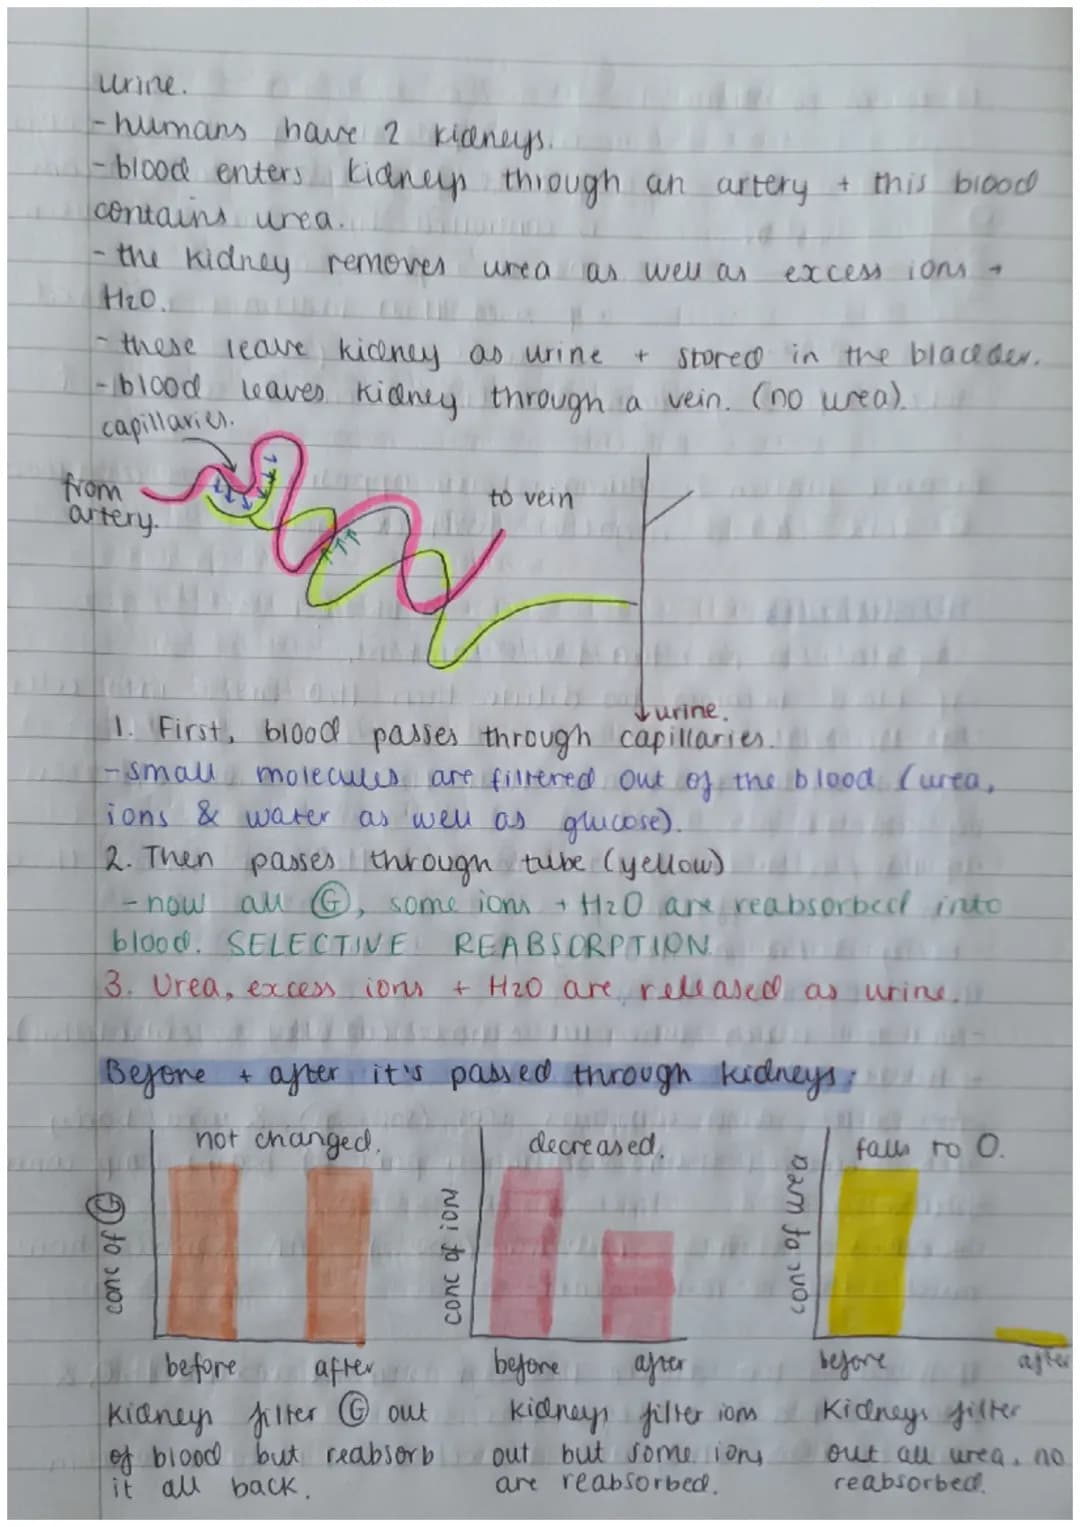 urine.
- humans have 2 kidneys.
- blood enters kidneys through an artery + this blood
contains urea.
- the kidney removes urea as well as excess ions +
H2O.
- these leave kidney as urine + stored in the bladder.
- blood leaves kidney through a vein. (no urea).
capillaries.
from
artery.
to vein
↓ urine.
1. First, blood passes through capillaries.
- small molecules are filtered out of the blood (urea,
ions & water as well as glucose).
2. Then passes through tube (yellow)
- now all G, some ions + H2O are reabsorbed into
blood. SELECTIVE REABSORPTION
3. Urea, excess ions + H2O are released as urine.
Before + after it's passed through kidneys:
not changed.
conc of G
before after
kidneys filter G out
of blood but reabsorb
it all back.
decreased.
conc of ion
before after
kidneys filter ions
out but some ions
are reabsorbed.
falls to 0.
conc of urea
before after
Kidneys filter
out all urea, no
reabsorbed.